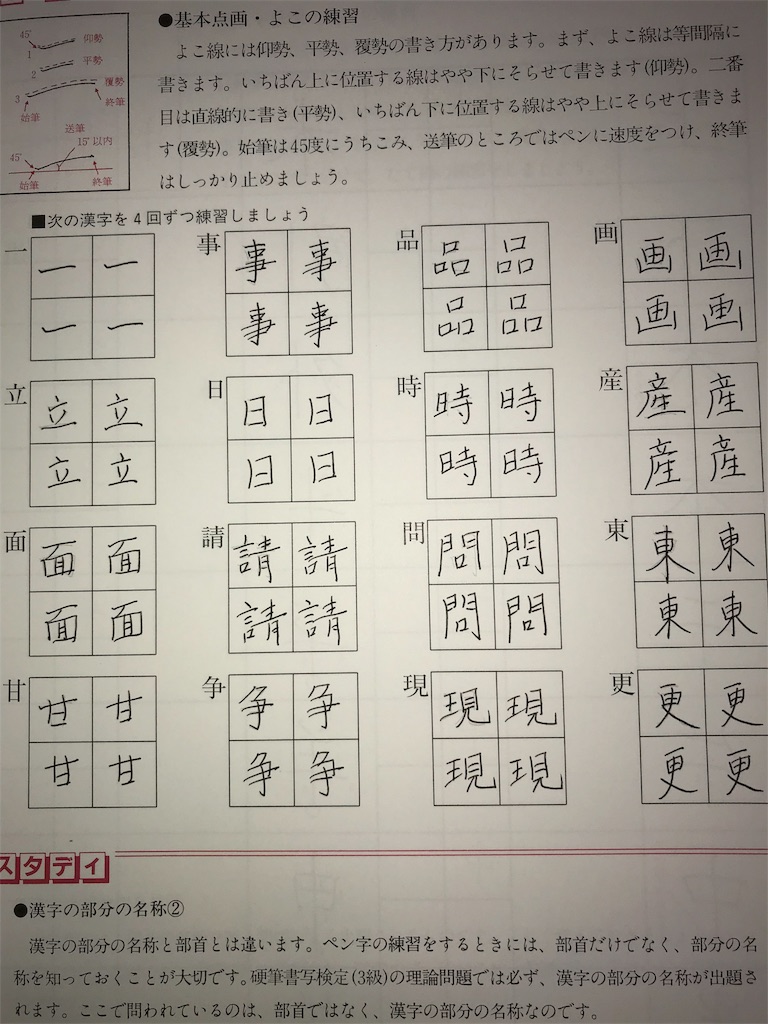 ●基本点画・よこの練習
よこ線には仰勢、平勢、覆勢の書き方があります。まず、よこ線は等間隔に
書きます。いちばん上に位置する線はやや下にそらせて書きます(仰勢)。二番
目は直線的に書き(平勢)、いちばん下に位置する線はやや上にそらせて書きま
す(覆勢)。始筆は45度にうちこみ、送筆のところではペンに速度をつけ、終筆
はしっかり止めましょう。
45°
1
仰勢
2
平勢
3
覆勢
始筆
終筆
送筆
15°以内
45°
始筆
終筆
■次の漢字を4回ずつ練習しましょう
一 一 一 事 事 事 品 品 品 画 画 画
一 一 事 事 品 品 画 画
立 立 立 日 日 日 時 時 時 産 産 産
立 立 日 日 時 時 産 産
面 面 面 請 請 請 問 問 問 東 東 東
面 面 請 請 問 問 東 東
甘 甘 甘 争 争 争 現 現 現 更 更 更
甘 甘 争 争 現 現 更 更
スタディ
●漢字の部分の名称②
漢字の部分の名称と部首とは違います。ペン字の練習をするときには、部首だけでなく、部分の名
称を知っておくことが大切です。硬筆書写検定(3級)の理論問題では必ず、漢字の部分の名称が出題さ
れます。ここで問われているのは、部首ではなく、漢字の部分の名称なのです。